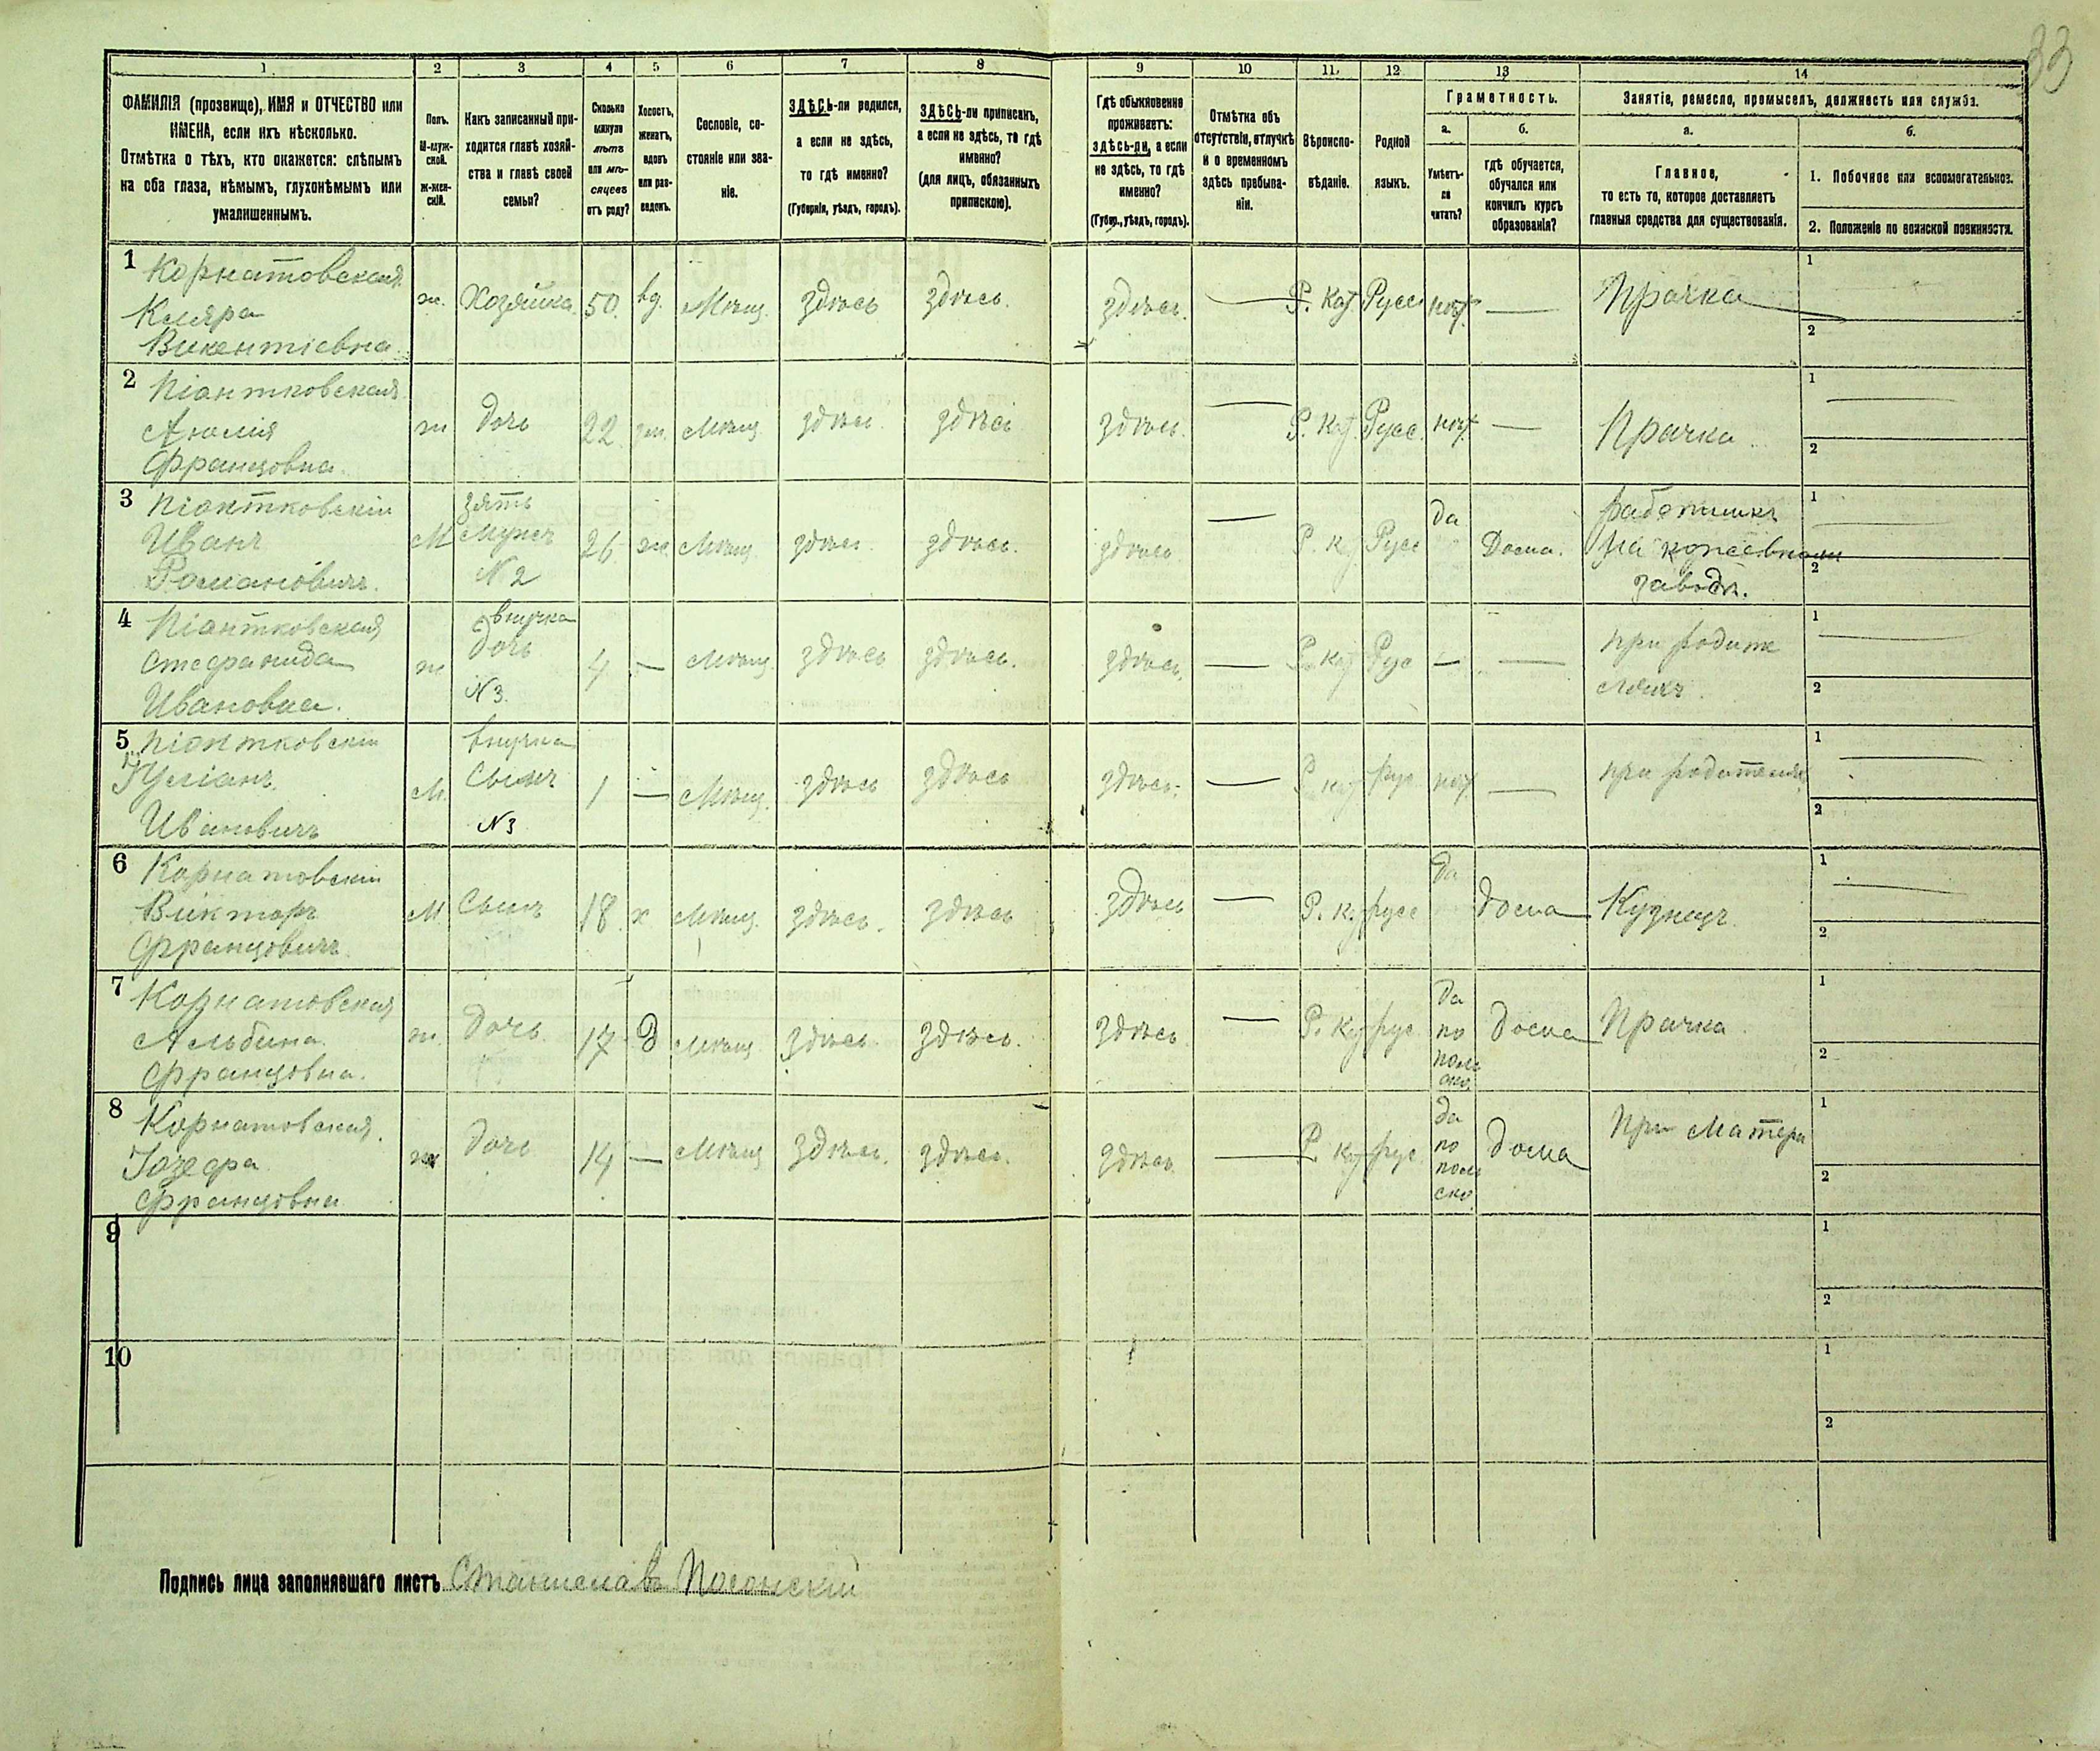 33
1 2 3 4 5 6 7 8 9 10 11 12 13 14
ФАМИЛІЯ (прозвище), ИМЯ и ОТЧЕСТВО или
ИМЕНА, если ихъ нѣсколько.
Отмѣтка о тѣхъ, кто окажется: слѣпымъ
на оба глаза, нѣмымъ, глухонѣмымъ или
умалишеннымъ.
Полъ.
М-муж-
ской.
Ж-жен-
скій.
Какъ записанный при-
ходится главѣ хозяй-
ства и главѣ своей
семьи?
Сколько
минуло
лѣтъ
или мѣ-
сяцевъ
отъ роду?
Холостъ,
женатъ,
вдовъ
или раз-
веденъ.
Сословіе, со-
стояніе или зва-
ніе.
ЗДѢСЬ-ли родился,
а если не здѣсь,
то гдѣ именно?
(Губернія, уѣздъ, городъ).
ЗДѢСЬ-ли приписанъ,
а если не здѣсь, то гдѣ
именно?
(для лицъ, обязанныхъ
припискою).
Гдѣ обыкновенно
проживаетъ:
здѣсь-ли, а если
не здѣсь, то гдѣ
именно?
(Губер., уѣздъ, городъ).
Отмѣтка объ
отсутствіи, отлучкѣ
и о временномъ
здѣсь пребыва-
ніи.
Вѣроиспо-
вѣданіе.
Родной
языкъ.
Грамотность.
а.
Умѣетъ-
ли
читать?
б.
гдѣ обучается,
обучался или
кончилъ курсъ
образованія?
Занятіе, ремесло, промыселъ, должность или служба.
а.
Главное,
то есть то, которое доставляетъ
главныя средства для существованія.
б.
1. Побочное или вспомогательное.
2. Положеніе по воинской повинности.
1 Корнатовская
Кляра
Викентіевна
ж. Хозяйка 50. вд. Мѣщ. здѣсь здѣсь. здѣсь. — Р. Кат Русс нѣт — Прачка 1
2
2 Піантковская
Анелія
Францовна.
ж дочь 22. зм. Мѣщ. здѣсь. здѣсь здѣсь. — Р. Кат. Русс. нѣт — Прачка 1
2
3 Піантковскій
Иванъ
Романовичъ.
М зять
Мужъ
N 2
26 ж. Мѣщ. здѣсь. здѣсь. здѣсь — Р. к Русс да Дома. работникъ
на кожевномъ
заводѣ.
1
2
4 Піантковская
Стефанида
Ивановна.
ж внучка
дочь
N 3.
4 — Мѣщ. здѣсь здѣсь. здѣсь. — Р. кат Рус — — при родите
ляхъ.
1
2
5 Піантковскій
Юліанъ
Ивановичъ
М. внучка
Сынъ
N 3
1 — Мѣщ. здѣсь здѣсь здѣсь. — Р кат рус нѣт — при родителях 1
2
6 Корнатовскій
Викторъ
Францовичъ.
М Сынъ 18. х Мѣщ. здѣсь. здѣсь здѣсь — Р. к. русс да дома Кузнецъ. 1
2
7 Корнатовская
Альбина.
Францовна.
ж. дочь 17 д Мѣщ. здѣсь. здѣсь. здѣсь — Р. Кат рус да
по
поль
ско.
дома Прачка 1
2
8 Корнатовская.
Іозефа
Францовна
ж дочь 14 — Мѣщ здѣсь. здѣсь. здѣсь — Р. кат рус да
по
поль
ско
дома При матери 1
2
9 1
2
10 1
2
Подпись лица заполнявшаго листъ Станиславъ